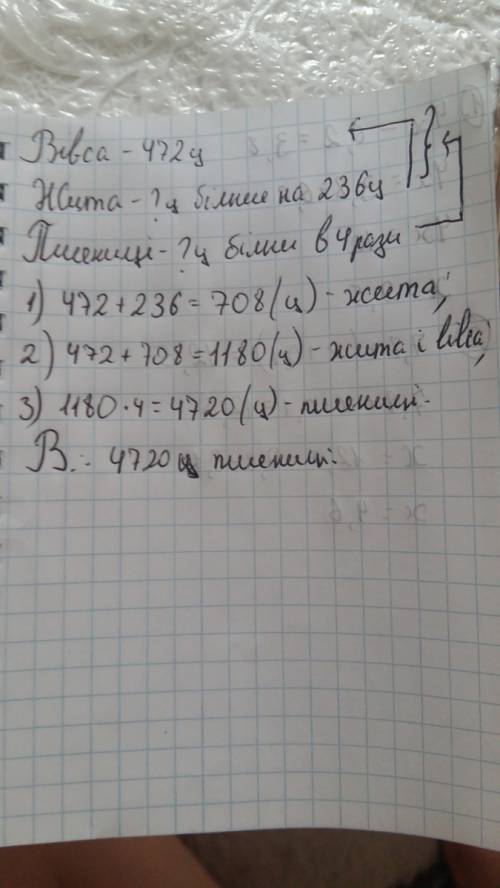 Вівса - 472ц
Жита - ?ц більше на 236ц
Пшениці - ?ц більш в 4 рази
1) 472+236=708(ц) - жита;
2) 472+708=1180(ц) - жита і вівса;
3) 1180·4=4720(ц) - пшениці.
В.: 4720ц пшениці.